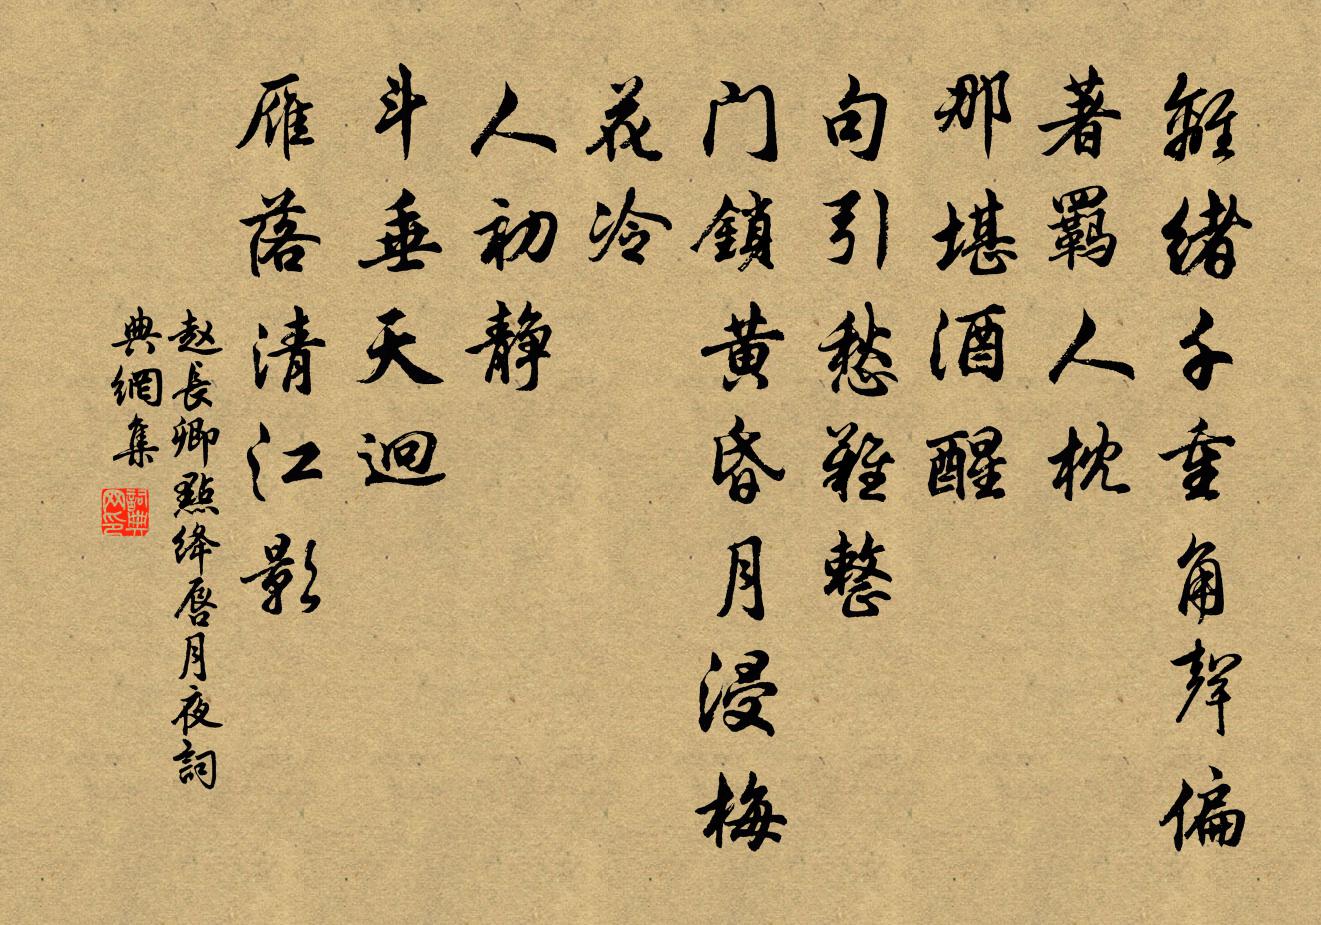 離緒千重角聲偏
著羈人枕
那堪酒醒
句引愁難整
门鎖黃昏月浸梅
花冷
人初靜
斗垂天迥
雁落清江影
赵長卿點绛唇月夜詞
典網集
詞典网印